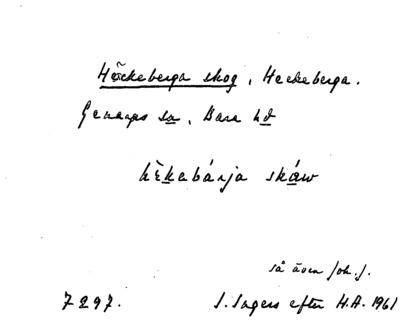 Häckeberga skog, Heckeberga.
Genarps sn, Bara hd
hèkabárja skáw
så även Joh. J.
7297. S. Ingers efter H.A. 1961